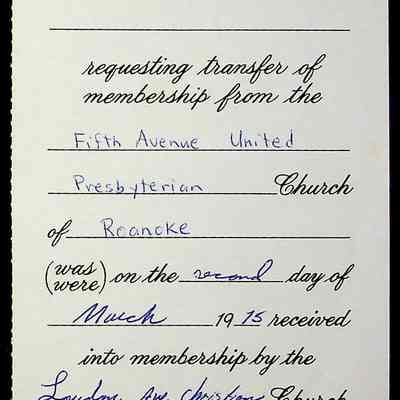 requesting transfer of
membership from the
Fifth Avenue United
Presbyterian Church
of Roanoke
(was
were) on the second day of
March 1975 received
into membership by the
Loudon Ave Christian Church